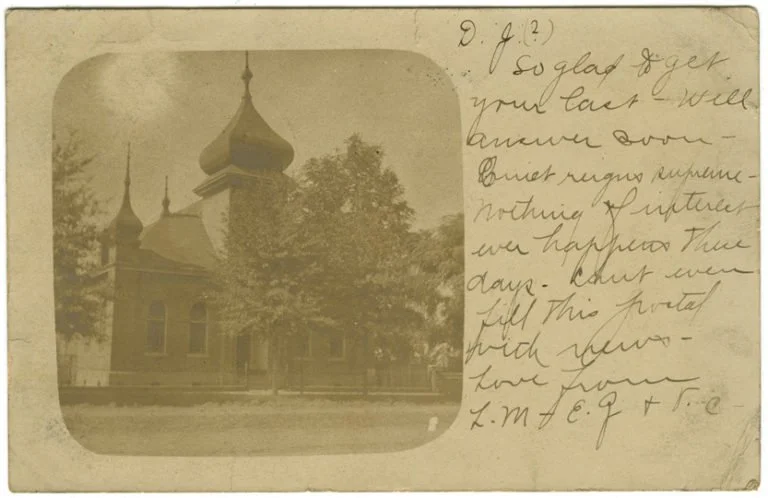 D. J. (?)
So glad to get
your last - Will
answer soon -
Quiet reigns supreme -
Nothing of interest
ever happens these
days - cant even
fill this postal
with news -
Love from
L. M + E. J + V. C